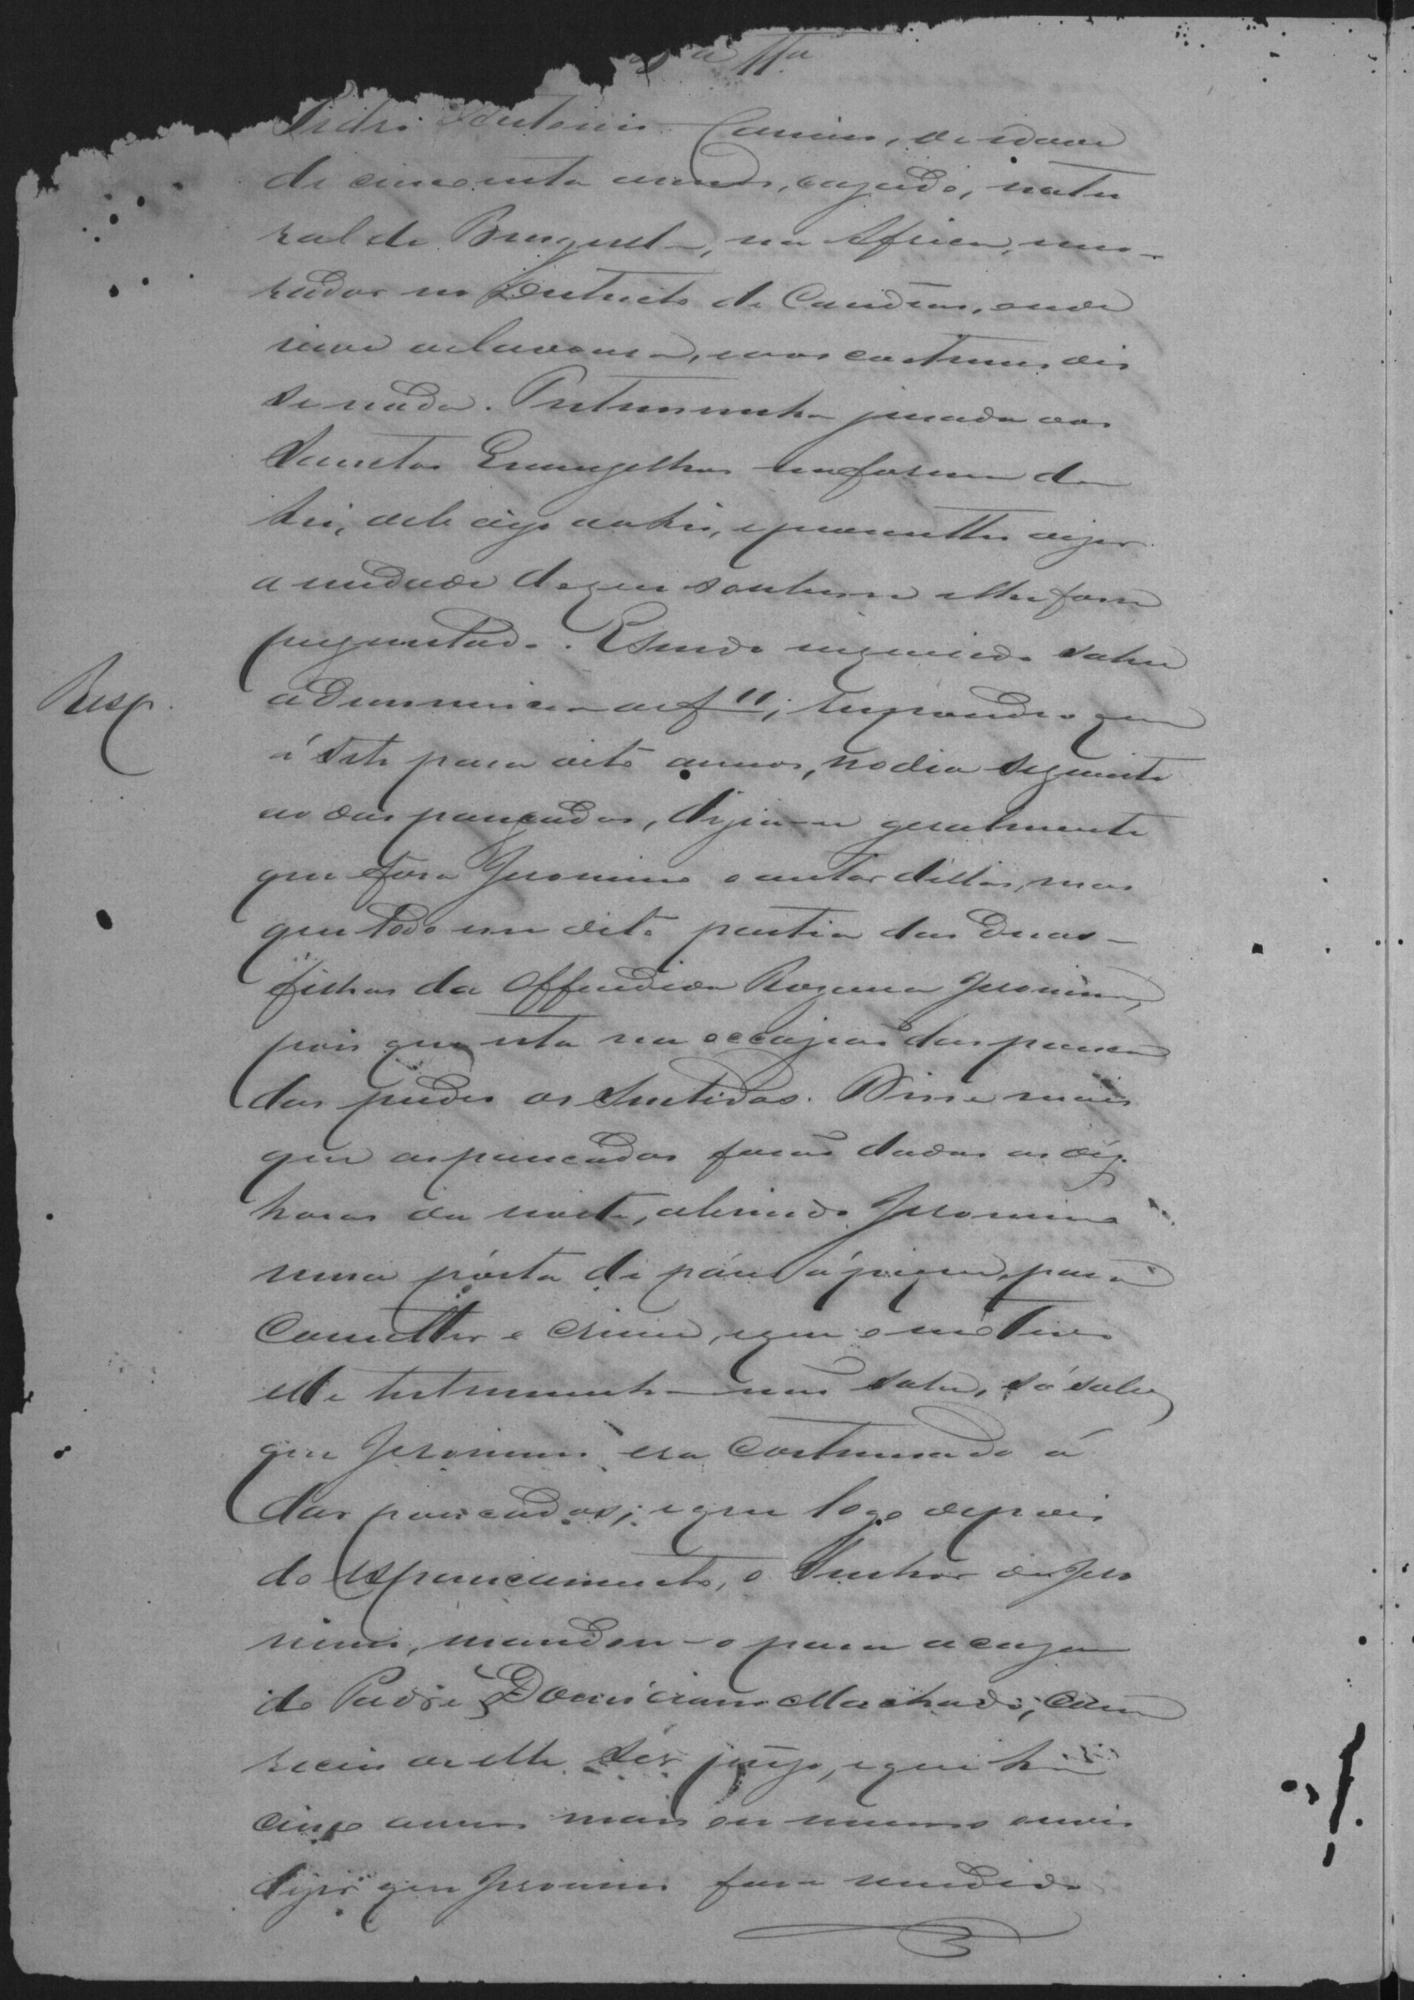 Pedro Antonio Camino, de idade
de cincoenta annos, cazado, natu
ral de Benguela, na Africa, mo-
rador no Districto de Candeas, onde
vive de lavoura, e aos costumes dis
se nada. Testemunha jurada aos
Sanctos Evangelhos na forma da
Lei, de dizer, e prometteu dizer
a verdade do que soubesse e lhe fosse
perguntado. E sendo inquirido sobre
Resp.
a Denuncia de f 11; respondeo que
á sete para oito annos, no dia seguinte
ao das pancadas, dizia-se geralmente
que fora Jeronimo o autor dellas, mas
que todo esse dito partia das duas
filhas da Offendida Rozaura Jeronima,
pois que esta na occazião das panca
das perdeo os sentidos. Disse mais
que as pancadas forão dadas as dez
horas da noite, abrindo Jeronimo
uma pórta de páu á pique, para
Cometter o Crime, e que o motivo
elle testemunha não sabe, só sabe
que Jeronimo era Costumado á
dar pancadas; e que logo depois
do espancamento, o Senhor de Jero
nimo, mandou-o para a caza
do Padre Domiciano Machado, com
receio de elle ser prezo, e que há
cinco annos mais ou menos ouvio
dizer que Jeronimo fora vendido